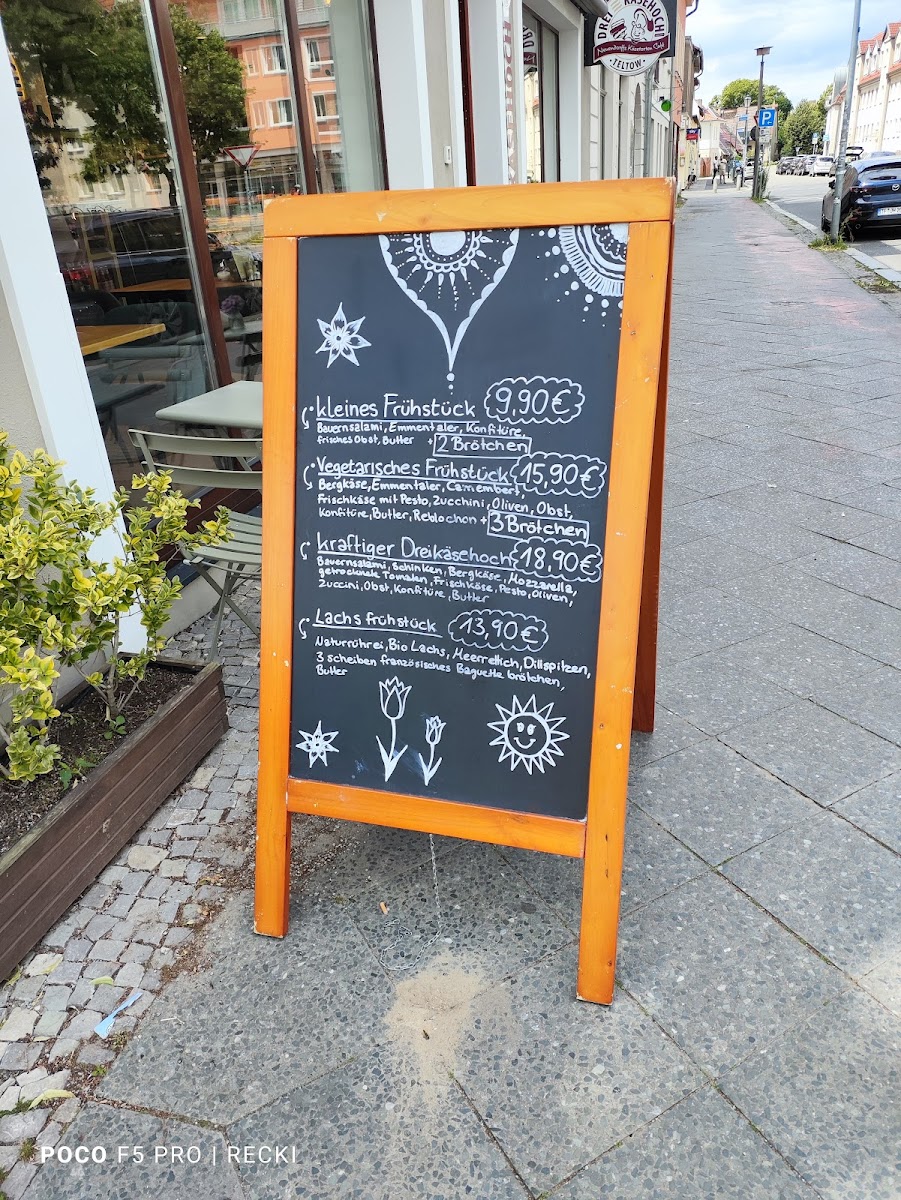 DREI KÄSEHOCH
Neuendorffs Käsetorten Café
TELTOW
P
kleines Frühstück 9,90€
Bauernsalami, Emmentaler, Konfitüre,
frisches Obst, Butter + 2 Brötchen
Vegetarisches Frühstück 15,90€
Bergkäse, Emmentaler, Camembert,
Frischkäse mit Pesto, Zucchini, Oliven, Obst,
Konfitüre, Butter, Reblochon + 3 Brötchen
kräftiger Dreikäsehoch 18,90€
Bauernsalami, Schinken, Bergkäse, Mozzarella,
getrocknete Tomaten, Frischkäse, Pesto, Oliven,
Zuccini, Obst, Konfitüre, Butter
Lachs frühstück 13,90€
Naturrührei, Bio Lachs, Meerrettich, Dillspitzen,
3 scheiben französisches Baguette brötchen,
Butter
POCO F5 PRO | RECKI